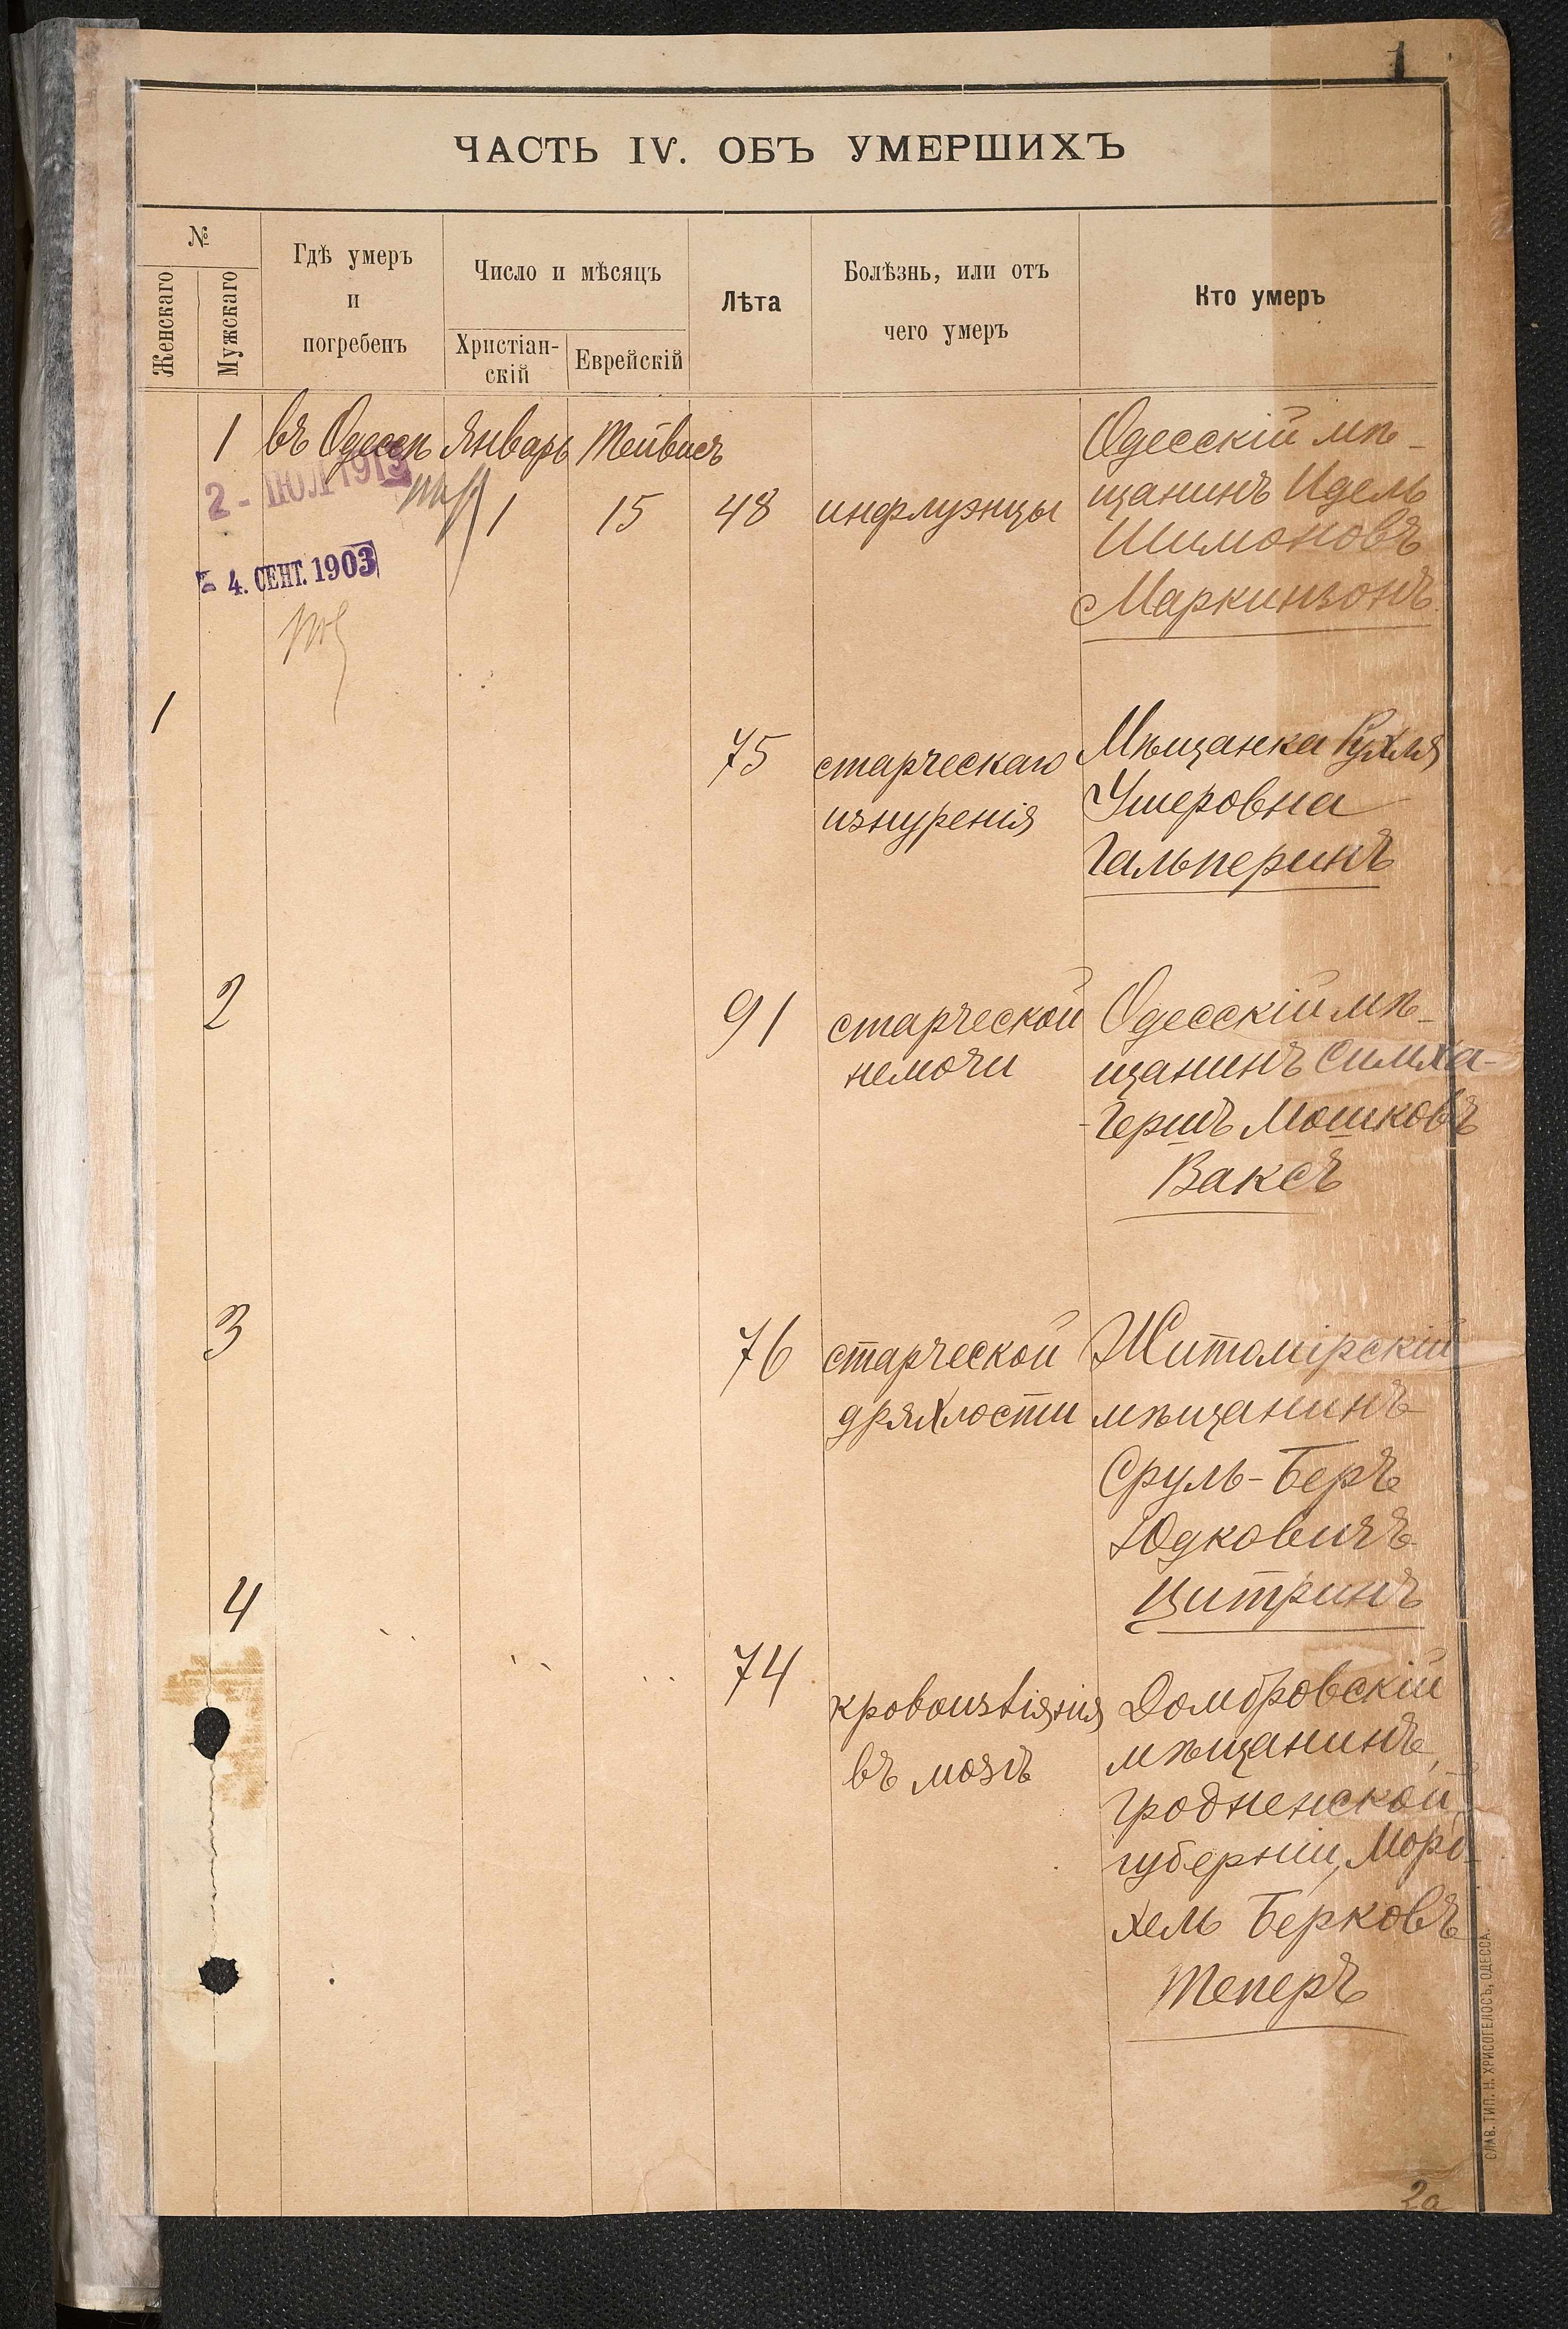 1
ЧАСТЬ IV. ОБЪ УМЕРШИХЪ
№
Женскаго
Мужскаго
Гдѣ умеръ
и
погребенъ
Число и мѣсяцъ
Христіан-
скій
Еврейскій
Лѣта
Болѣзнь, или отъ
чего умеръ
Кто умеръ
1 въ Одессѣ Январь Тейвисъ Одесскій мѣ-
2 - ІЮЛ 1913
1 15 48 инфлуэнцы щанинъ Идель
Шимоновъ
- 4. СЕНТ. 1903
Маркинзонъ
1
75 старческаго Мѣщанка Рухля
изнуренія Ушеровна
Гальперинъ
2 91 старческой Одесскій мѣ-
немочи щанинъ Симха-
-Гершъ Мошковъ
Ваксъ
3 76 старческой Житомірскій
дряхлости мѣщанинъ
Сруль-Беръ
Юдковичъ
4 Цитринъ
74
кровоизліянія Домбровскій
въ мозгъ мѣщанинъ,
Гродненской
губерніи, Мор-
хель Берковъ
Теперъ
СЛАВ. ТИП. Н. ХРИСОГЕЛОСЪ, ОДЕССА.
2а